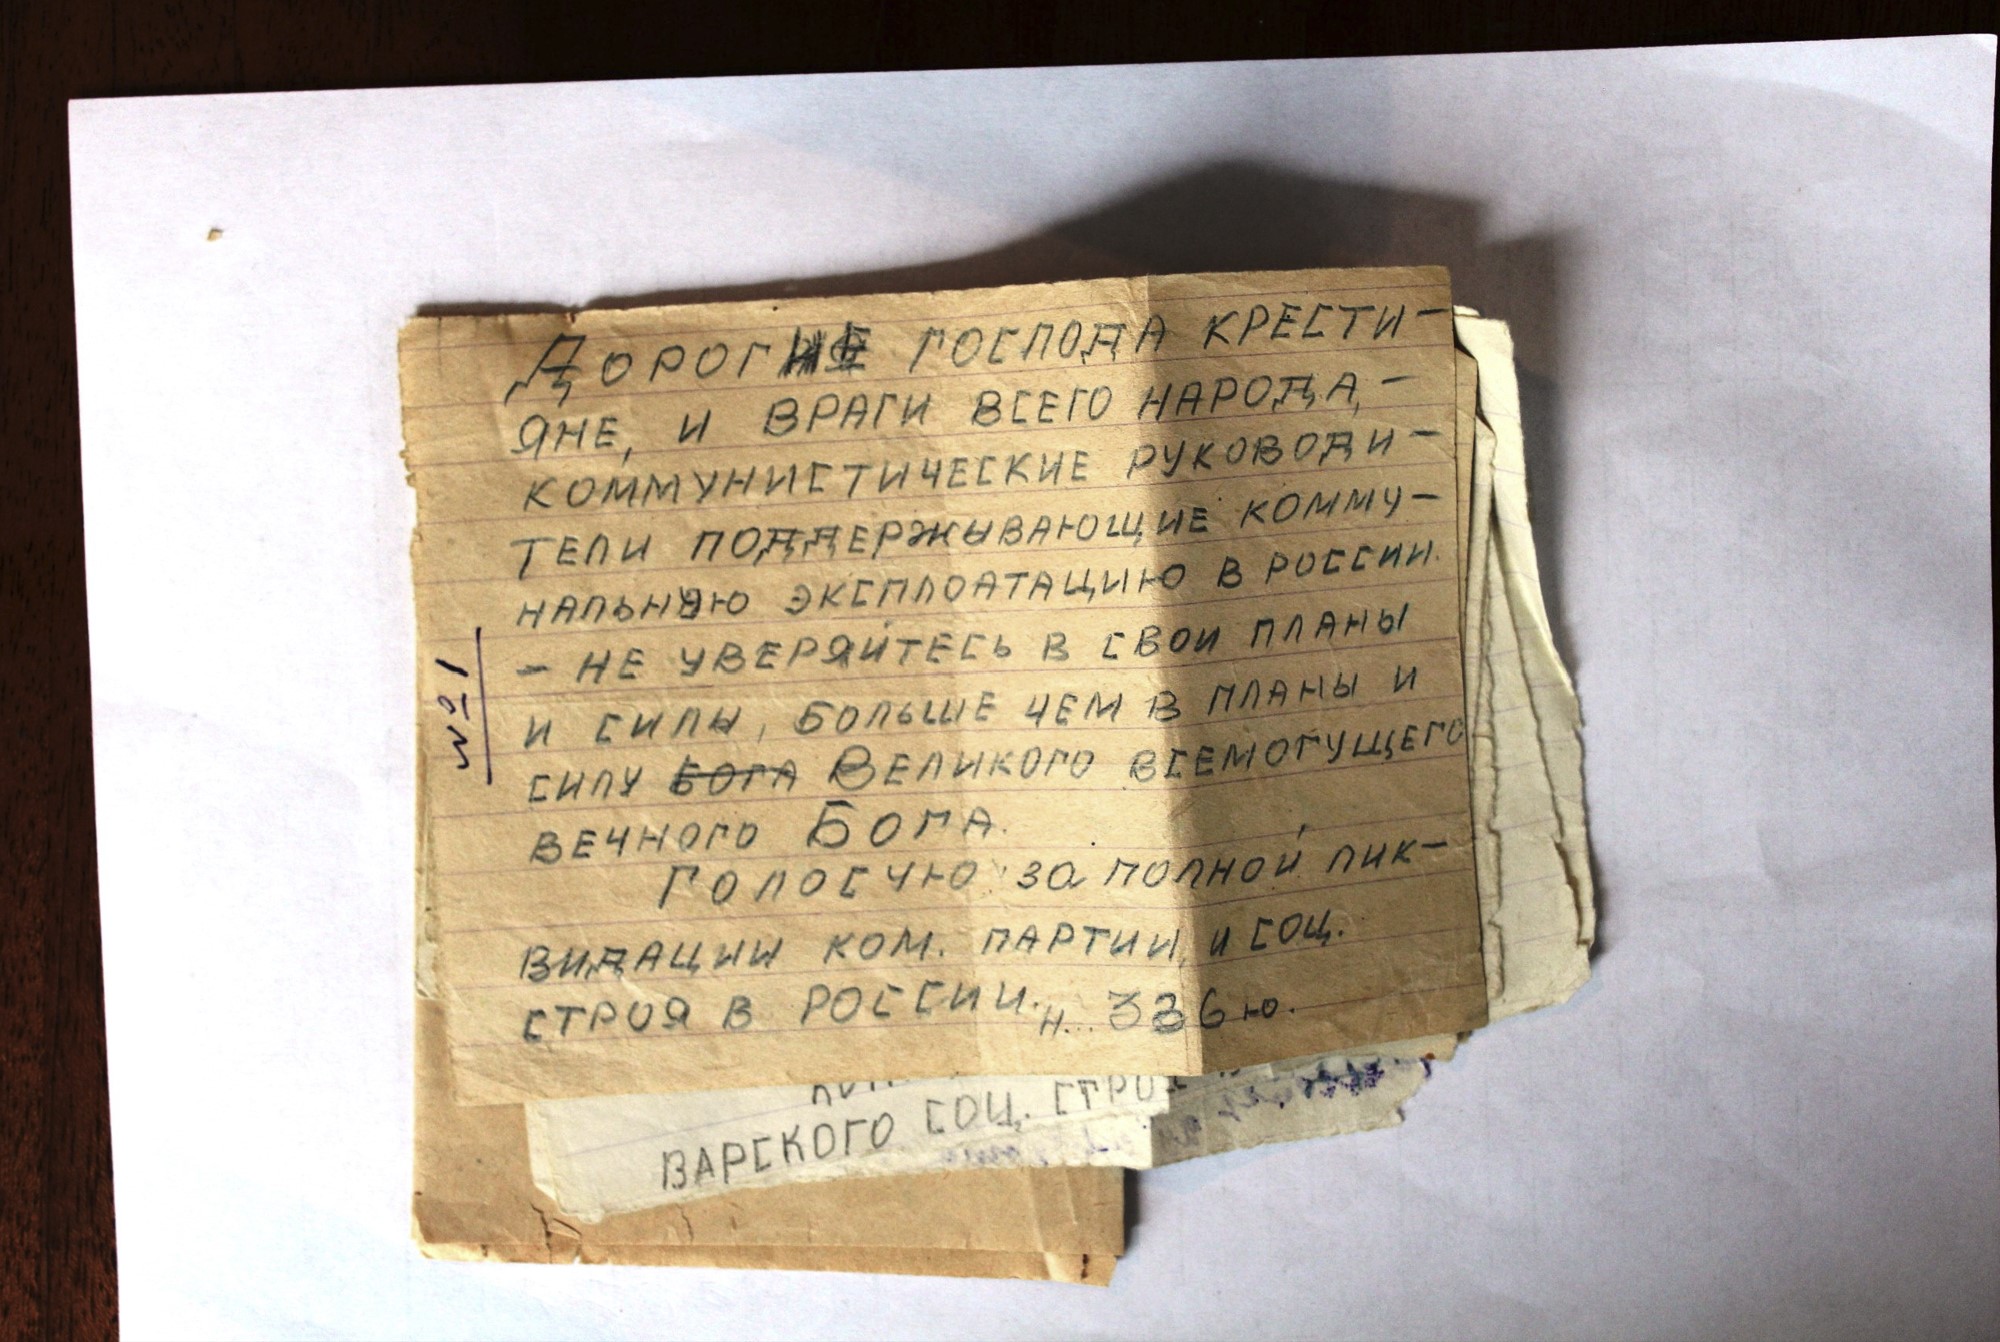 ДОРОГИЕ ГОСПОДА КРЕСТИ-
ЯНЕ, И ВРАГИ ВСЕГО НАРОДА, -
КОММУНИСТИЧЕСКИЕ РУКОВОДИ-
ТЕЛИ ПОДДЕРЖЫВАЮЩИЕ КОММУ-
НАЛЬНУЮ ЭКСПЛОАТАЦИЮ В РОССИИ.
- НЕ УВЕРЯЙТЕСЬ В СВОИ ПЛАНЫ
И СИЛЫ, БОЛЬШЕ ЧЕМ В ПЛАНЫ И
СИЛУ БОГА ВЕЛИКОГО ВСЕМОГУЩЕГО
ВЕЧНОГО БОГА.
ГОЛОСУЮ ЗА ПОЛНОЙ ЛИК-
ВИДАЦИИ КОМ. ПАРТИИ, И СОЦ.
СТРОЯ В РОССИИ. Н... 336 Ю.
№1
ВАРСКОГО СОЦ. СТРОЯ